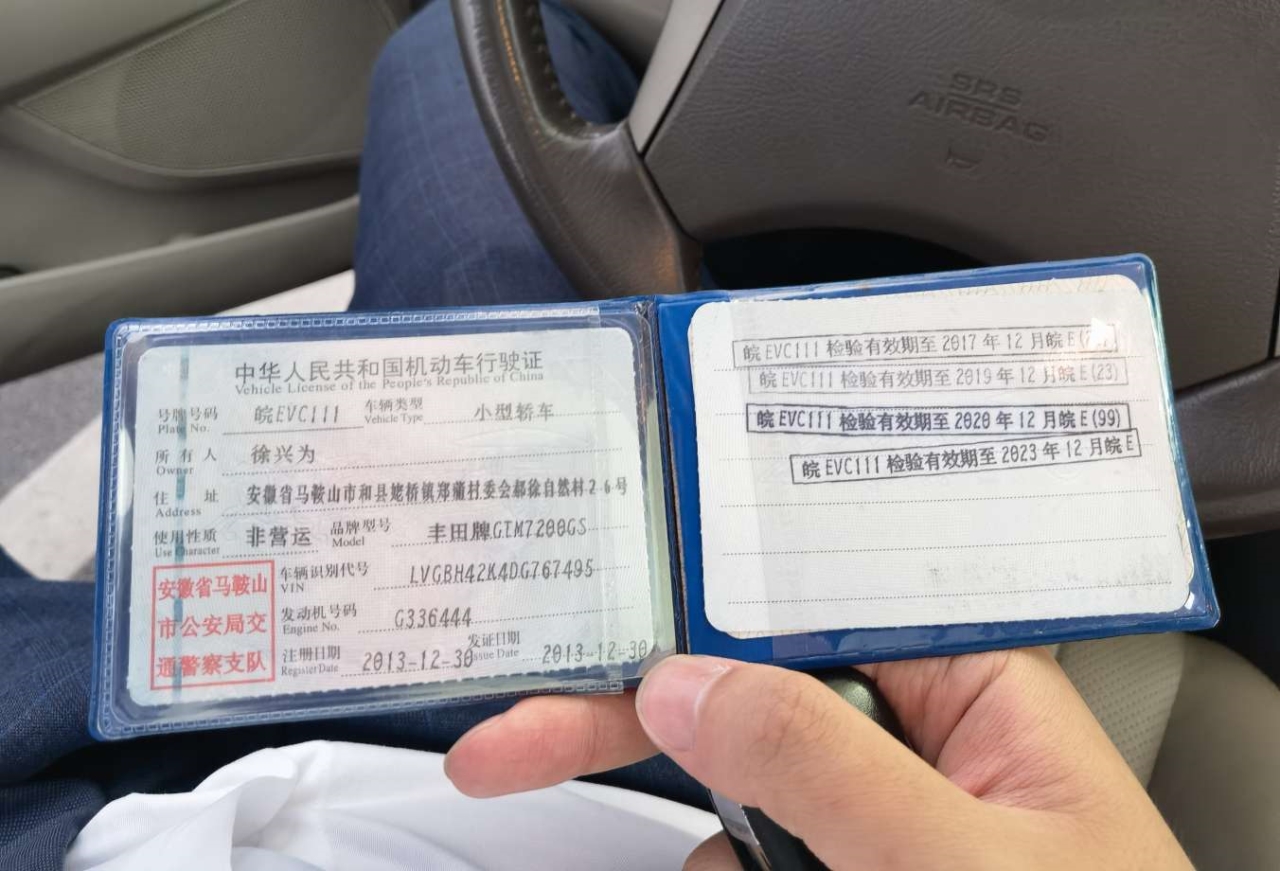 SRS
AIRBAG
中华人民共和国机动车行驶证
Vehicle License of the People's Republic of China
号牌号码 皖EVC111 车辆类型 小型轿车
Plate No. Vehicle Type
所有人 徐兴为
Owner
住址 安徽省马鞍山市和县姥桥镇郑蒲村委会郝徐自然村26号
Address
使用性质 非营运 品牌型号 丰田牌GTM7200GS
Use Character Model
安徽省马鞍山
市公安局交
通警察支队
车辆识别代号 LVGBH42K4DG767495
VIN
发动机号码 G336444
Engine No.
注册日期 2013-12-30 发证日期 2013-12-30
Register Date Issue Date
皖EVC111检验有效期至2017年12月皖E
皖EVC111检验有效期至2019年12月皖E(23)
皖EVC111检验有效期至2020年12月皖E(99)
皖EVC111检验有效期至2023年12月皖E